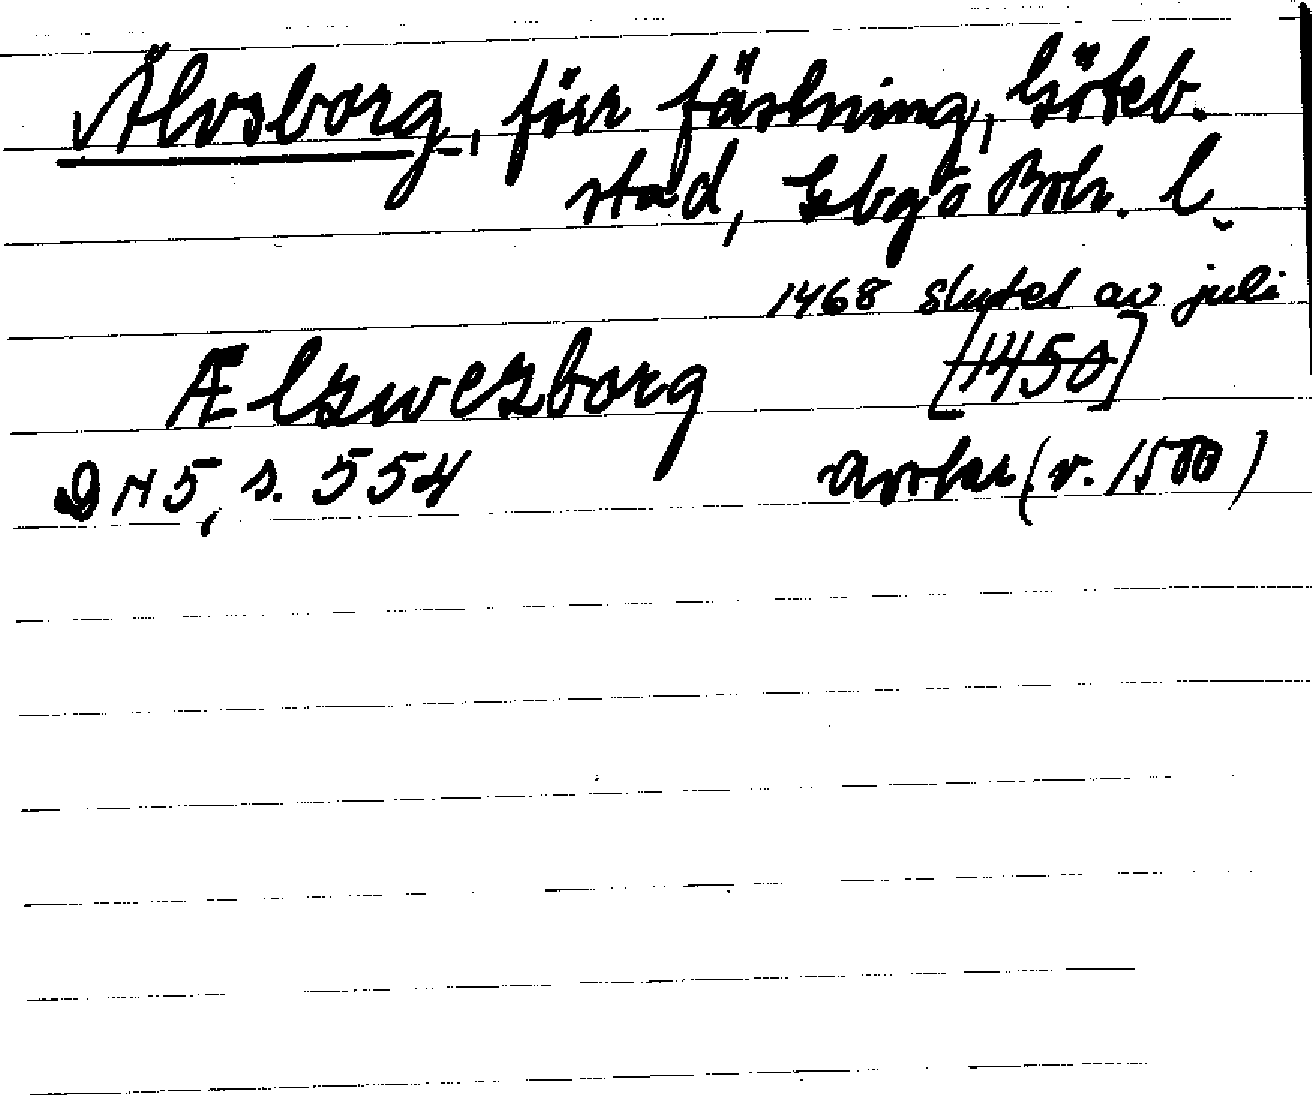 Älvsborg, förr fästning, Göteb.
stad, Gbg o Boh. l.
1468 slutet av juli
Ælzwezborg [1450]
DN 5, s. 554 avskr (v. 1500)